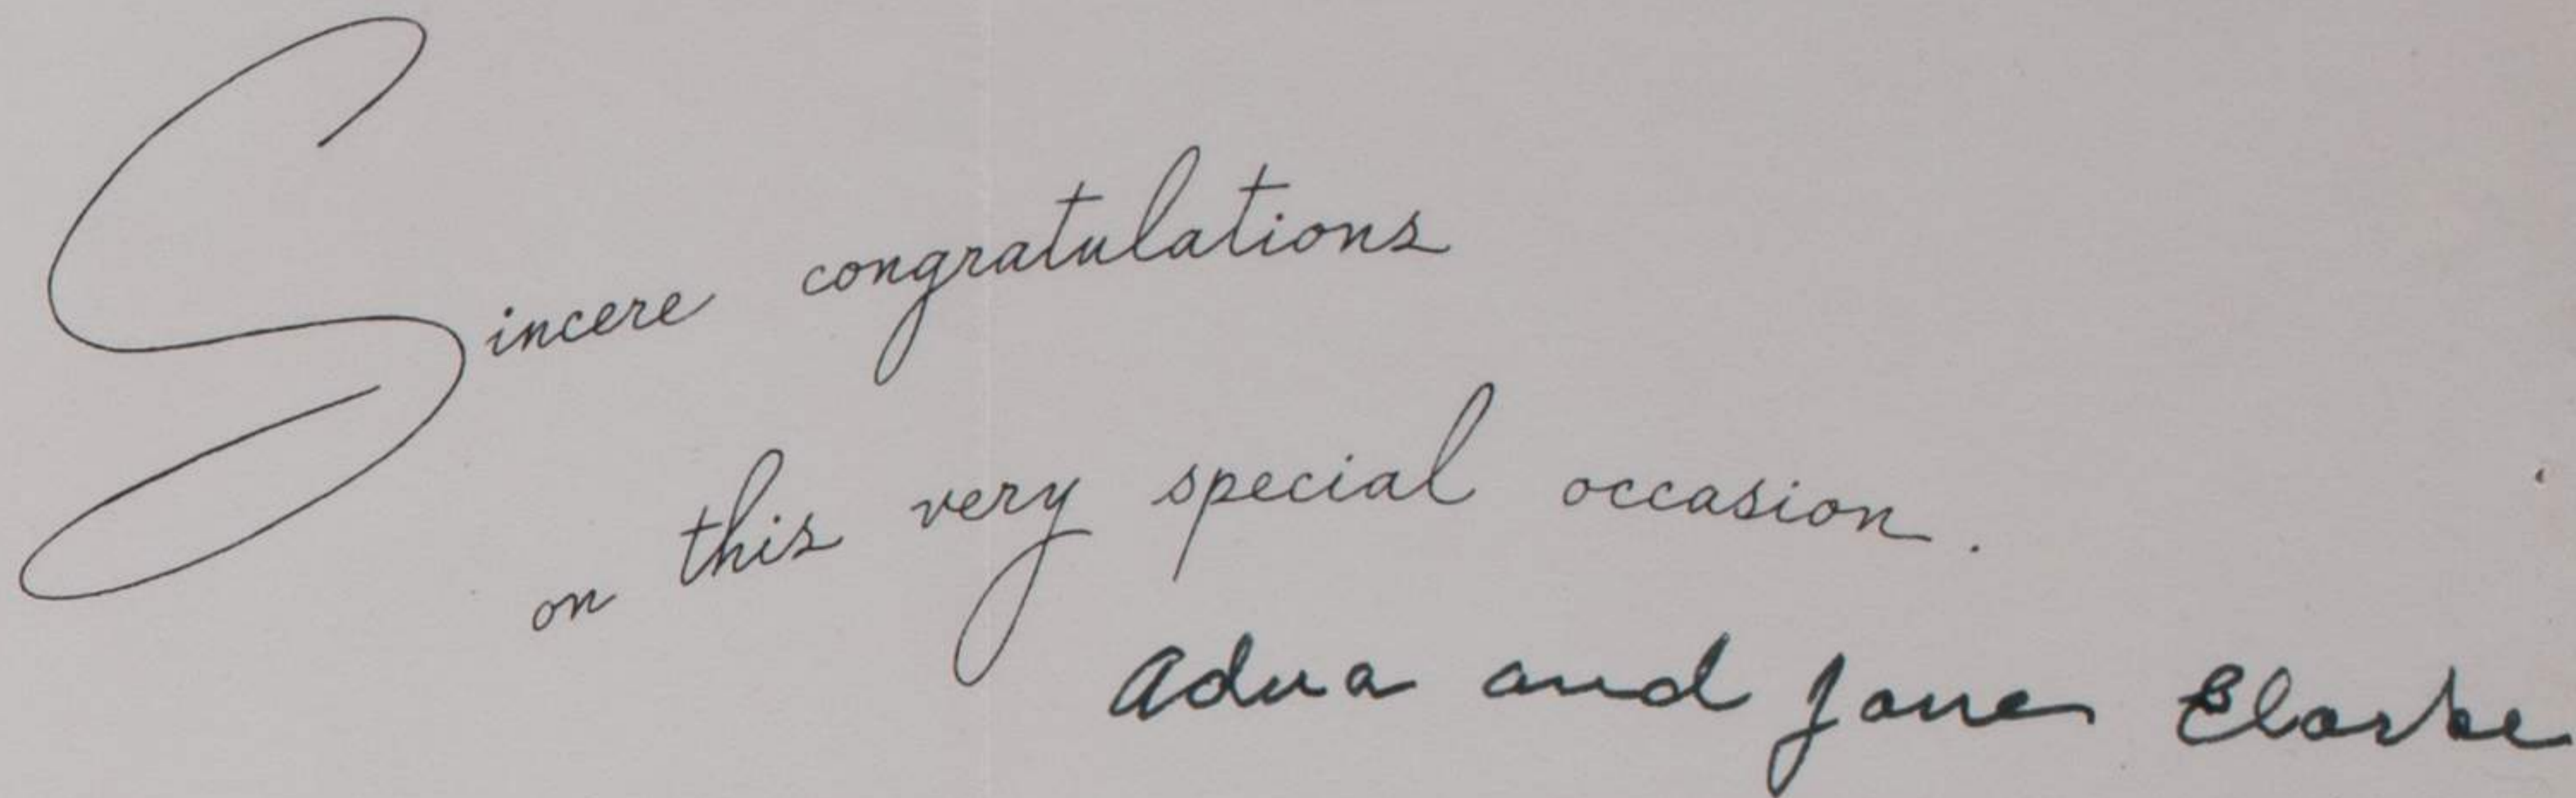 Sincere congratulations
on this very special occasion.
and Jane Clarke